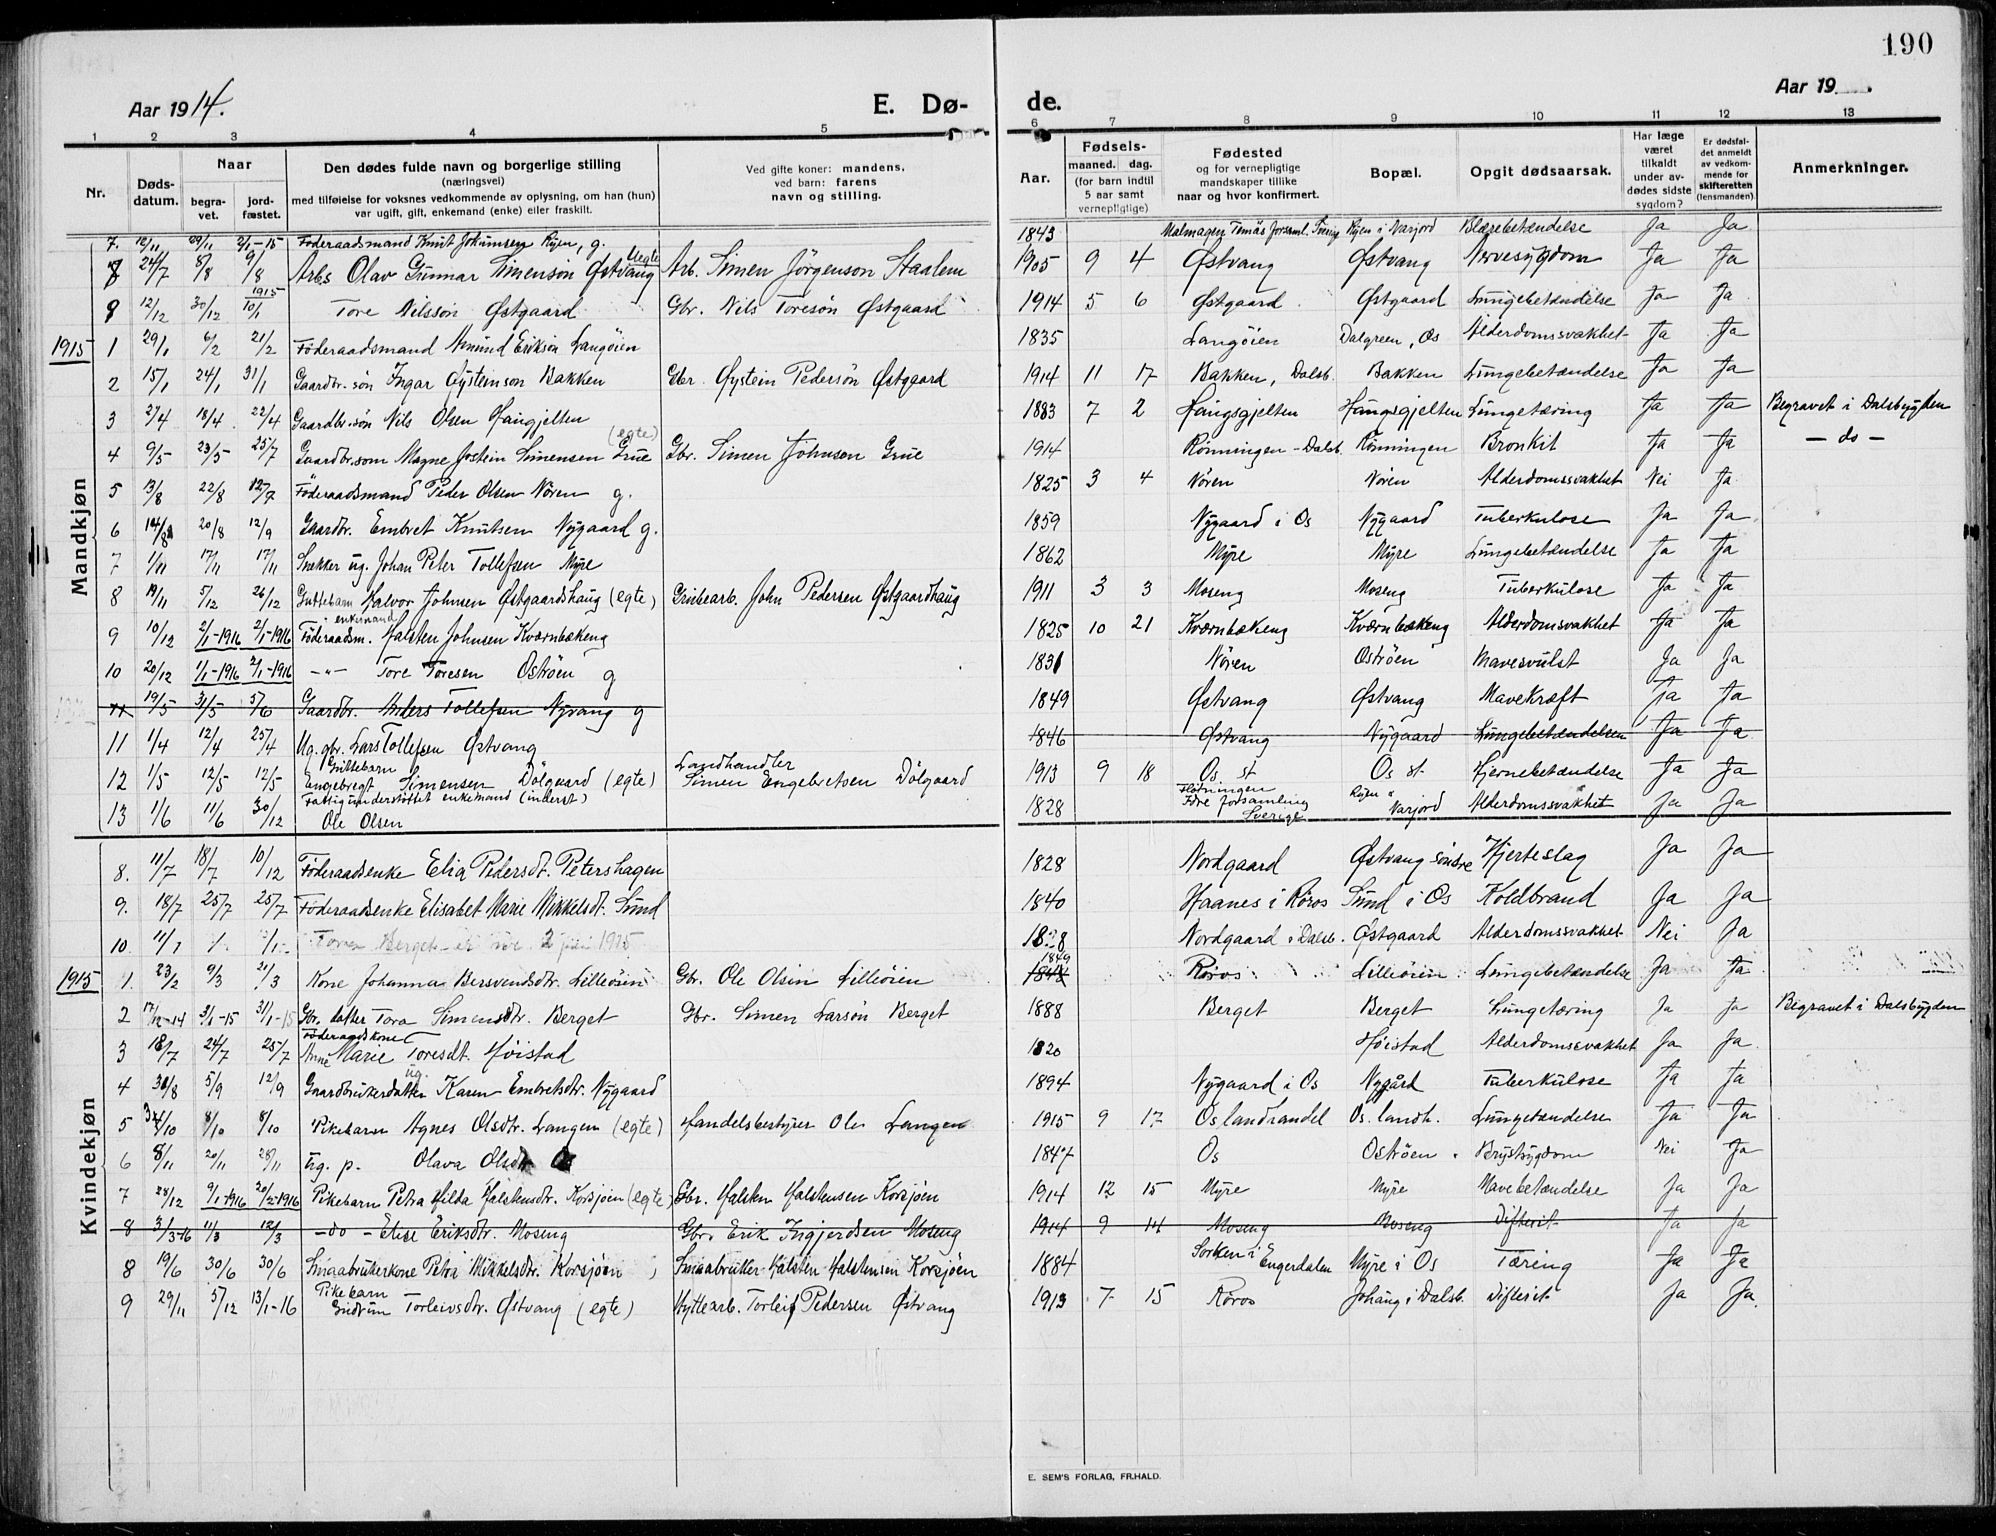 190
Aar 1914.
E. Dø-
de.
Aar 19
1 2 3 4 5 6 7 8 9 10 11 12 13
Nr. Døds-datum. Naar begra-vet. jord-fæstet. Den dødes fulde navn og borgerlige stilling (næringsvei) med tilføielse for voksnes vedkommende av oplysning, om han (hun) var ugift, gift, enkemand (enke) eller fraskilt. Ved gifte koner: mandens, ved barn: farens navn og stilling. Aar. Fødsels- maaned. dag. (for barn indtil 5 aar samt vernepligtige) Fødested og for vernepligtige mandskaper tillike naar og hvor konfirmert. Bopæl. Opgit dødsaarsak. Har læge været tilkaldt under av-dødes sidste sygdom? Er dødsfal-det anmeldt av vedkom-mende for skifteretten (lensmanden). Anmerkninger.
Mandkjøn
7. 12/11 29/11 2/1-15 Föderaadsmand Knut Jokumsen Ryen, g. 1843 Malmagen Ryen i Narjord Blærebetændelse Ja Ja
8 24/7 8/8 9/8 Arbs Olav Gunnar Simensön Østvang Uegte Arb. Simen Jörgenson Staalem 1905 9 4 Østvang Østvang Nervesygdom Ja Ja
9 12/12 30/12 1915 10/1 Tore Nilssön Østgaard Gbr. Nils Toresön Østgaard 1914 5 6 Østgaard Østgaard Lungebetændelse Ja Ja
1915 1 29/1 6/2 21/2 Föderaadsmand Amund Eriksön Langöien 1835 Langöien Dalgreen, Os Alderdomssvakhet Ja Ja
2 15/1 24/1 31/1 Gaardbr. sön Ingar Øysteinson Bakken Gbr. Øystein Pedersön Østgaard 1914 11 17 Bakken, Dalsb. Bakken Lungebetændelse Ja Ja
3 2/4 18/4 22/4 Gaardbr. sön Nils Olsen Haugjelten 1883 7 2 Haugsgjelten Haugsgjelten Lungetæring Ja Ja Begravet i Dalsbygden
4 9/5 23/5 25/7 Gaardbr. søn Magne Jostein Simensen Grue (egte) Gbr. Simen Johnsen Grue 1914 Rönningen - Dalsb. Rönningen Bronkit Ja Ja - do -
5 13/8 22/8 Föderaadsmand Peder Olsen Nören g. 1825 3 4 Nören Nören Alderdomssvakhet Nei Ja
6 14/8 20/8 12/9 Gaardbr. Embret Knutsen Nygaard g. 1859 Nygaard i Os Nygaard Tuberkulose Ja Ja
7 1/11 17/11 17/11 Snekker ug. Johan Peter Tollefsen Myre 1862 Myre Myre Lungebetændelse Ja Ja
8 19/11 5/12 26/12 Guttebarn Halvor Johnsen Østgaardshaug (egte) Grubearb. John Pedersen Østgaardhaug 1911 3 3 Moseng Moseng Tuberkulose Ja Ja
9 10/12 2/1-1916 2/1-1916 Föderaadsm. enkemand Halsten Johnsen Kværnbækeng 1825 10 21 Kværnbækeng Kværnbækeng Alderdomsvakhet Ja Ja
10 20/12 1/1-1916 2/1-1916 -"- Tore Toresen Oströen g 1831 Nören Oströen Mavesvulst Ja Ja
11 19/5 31/5 5/6 Gaardbr. Anders Tollefsen Nyvang g 1849 Østvang Østvang Mavekræft Ja Ja
11 1/4 12/4 25/4 Ug. gbr. Lars Tollefsen Østvang 1846 Østvang Nygaard Lungebetændelsen Ja Ja
12 1/5 12/5 12/5 Guttebarn Engebregt Simensen Dölgaard (egte) Landhandler Simen Engebretsen Dölgaard 1913 9 18 Os st Os st. Hjernebetændelse Ja Ja
13 1/6 11/6 30/12 Fattigunderstöttet enkemand (inderst) Ole Olsen 1828 forsamling Sverige Ryen i Narjord Alderdomssvakhet Ja Ja
Kvindekjøn
8. 11/7 18/7 10/12 Föderaadsenke Elia Pedersdt. Petershagen 1828 Nordgaard Østvang söndre Hjerteslag Ja Ja
9. 18/7 25/7 25/7 Föderaadsenke Elisabet Marie Mikkelsdt. Sund 1840 Haanes i Röros Sund i Os Koldbrand Ja Ja
10. Berget 1915 Nordgaard i Dalsb. Østgaard Alderdomssvakhet Nei Ja
1915 1. 23/2 9/3 21/3 Kone Johanna Bersvendsdtr. Lilleöien Gbr. Ole Olsen Lilleöien 1849 Röros Lilleöien Lungebetændelse Ja Ja
2 17/12-14 3/1-15 31/1-15 Gbr. datter Tora Simensdtr. Berget Gbr. Simen Larsön Berget 1888 Berget Berget Lungetæring Ja Ja Begravet i Dalsbygden
3 18/7 24/7 25/7 Föderaadskone Anne Marie Toresdt. Höistad 1820 Höistad Alderdomssvakhet Ja Ja
4 31/8 5/9 12/9 Gaardbrukerdatter ug. Karen Embretsdtr. Nygaard 1894 Nygaard i Os Nygård Tuberkulose Ja Ja
5 8/10 8/10 Pikebarn Agnes Olsdtr. Langen (egte) Handelsbestyrer Ole Langen 1915 9 17 Os landhandel Os. landh. Lungebetændelse Ja Ja
6 8/11 20/11 28/11 Ug. p. Olava Olsdtr Os 1847 Os Oströen Brystsygdom Nei Ja
7 28/12 9/1-1916 20/2-1916 Pikebarn Petra Hilda Halstensdtr. Korsjöen (egte) Gbr. Halsten Halstensen Korsjöen 1914 12 15 Myre Myre Mavebetændelse Ja Ja
8 3/3-16 11/3 12/3 - do - Elise Eriksdtr. Moseng Gbr. Erik Ingjerdsen Moseng 1914 9 14 Moseng Moseng Difterit Ja Ja
8 19/6 30/6 30/6 Smaabrukerkone Petra Mikkelsdtr. Korsjöen Smaabruker Halsten Halstensen Korsjöen 1884 Sorken i Engerdalen Myre i Os Tæring Ja Ja
9 29/11 5/12 13/1-16 Pikebarn Gudrun Torleivsdtr. Østvang (egte) Hyttearb. Torleif Pedersen Østvang 1913 7 15 Röros Johaug i Dalsb. Difterit Ja Ja
E. SEM'S FORLAG, FR.HALD.